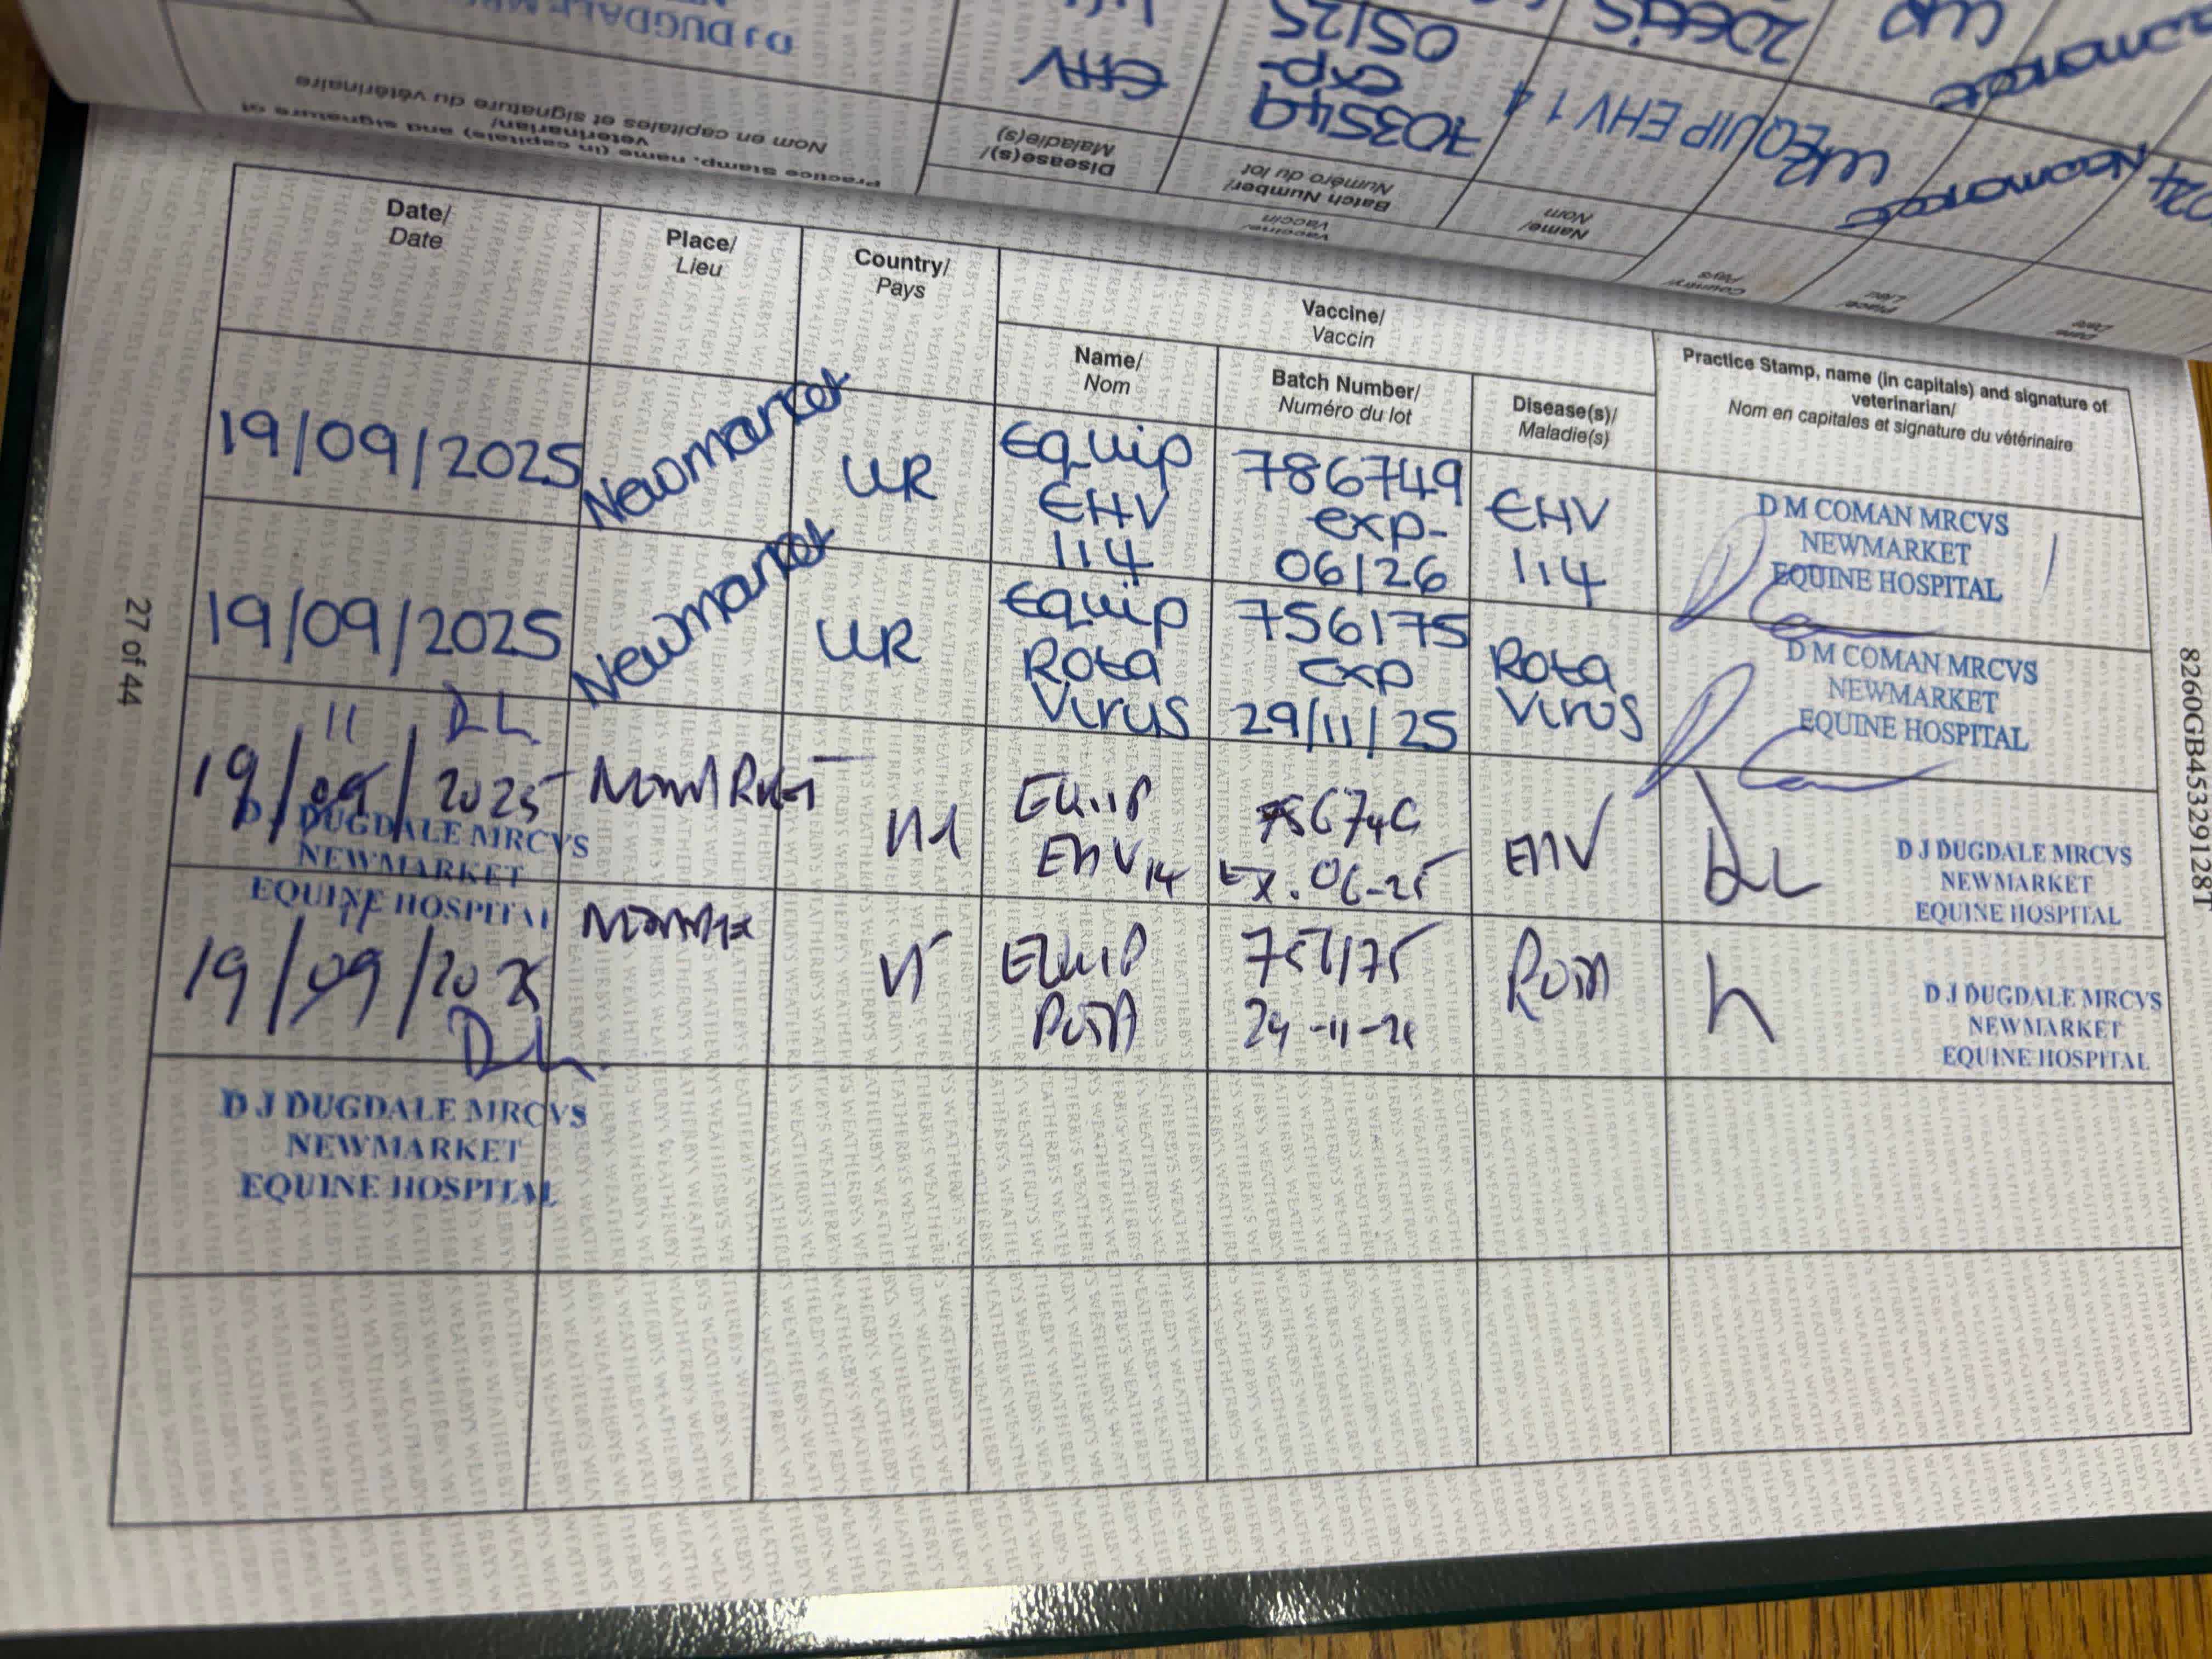 DJ DUGDALE MRCVS
Practice Stamp, name (in capitals) and signature of
veterinarian/
Nom en capitales et signature du vétérinaire
Disease(s)/
Maladie(s)
Vaccine/
Vaccin
Batch Number/
Numéro du lot
Name/
Nom
Country/
Pays
Place/
Lieu
Date/
Date
EHV
703549
exp-
05/25
EQUIP EHV 1 4
UK
Newmarket
Zoetis
UK
Newmarket
Date/
Date
Place/
Lieu
Country/
Pays
Vaccine/
Vaccin
Name/
Nom
Batch Number/
Numéro du lot
Disease(s)/
Maladie(s)
Practice Stamp, name (in capitals) and signature of
veterinarian/
Nom en capitales et signature du vétérinaire
19/09/2025
Newmarket
UK
Equip
EHV
114
786749
exp-
06/26
EHV
114
D M COMAN MRCVS
NEWMARKET
EQUINE HOSPITAL
19/09/2025
Newmarket
UK
Equip
Rota
Virus
756175
exp
29/11/25
Rota
Virus
D M COMAN MRCVS
NEWMARKET
EQUINE HOSPITAL
11 DL
19/09/2025
D J DUGDALE MRCVS
NEWMARKET
EQUINE HOSPITAL
Equip
EHV 14
EHV
DL
D J DUGDALE MRCVS
NEWMARKET
EQUINE HOSPITAL
11
19/09/2025
DL
Equip
Rota
Rota
D J DUGDALE MRCVS
NEWMARKET
EQUINE HOSPITAL
D J DUGDALE MRCVS
NEWMARKET
EQUINE HOSPITAL
27 of 44
8260GB453291128T